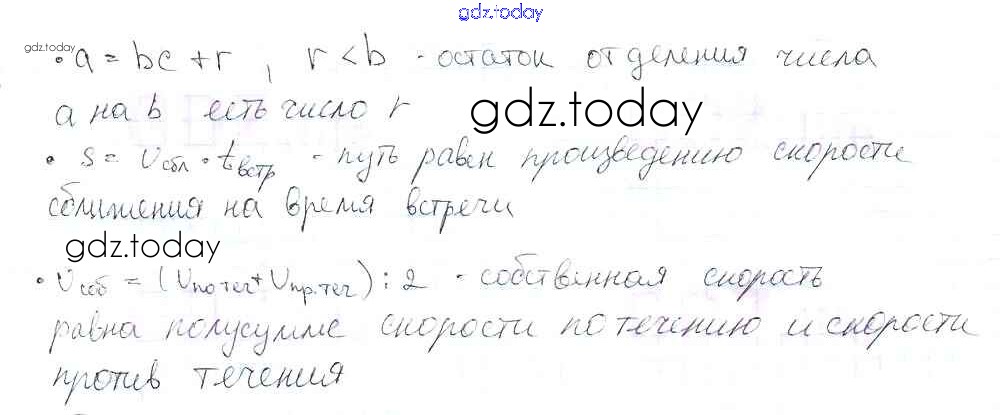 gdz.today
gdz.today
• a = bc + r, r < b - остаток от деления числа
a на b есть число r gdz.today
• s = υсбл • tвстр - путь равен произведению скорости
сближения на время встречи
gdz.today
• υсоб = (υпо теч + υпр.теч) : 2 - собственная скорость
равна полусумме скорости по течению и скорости
против течения